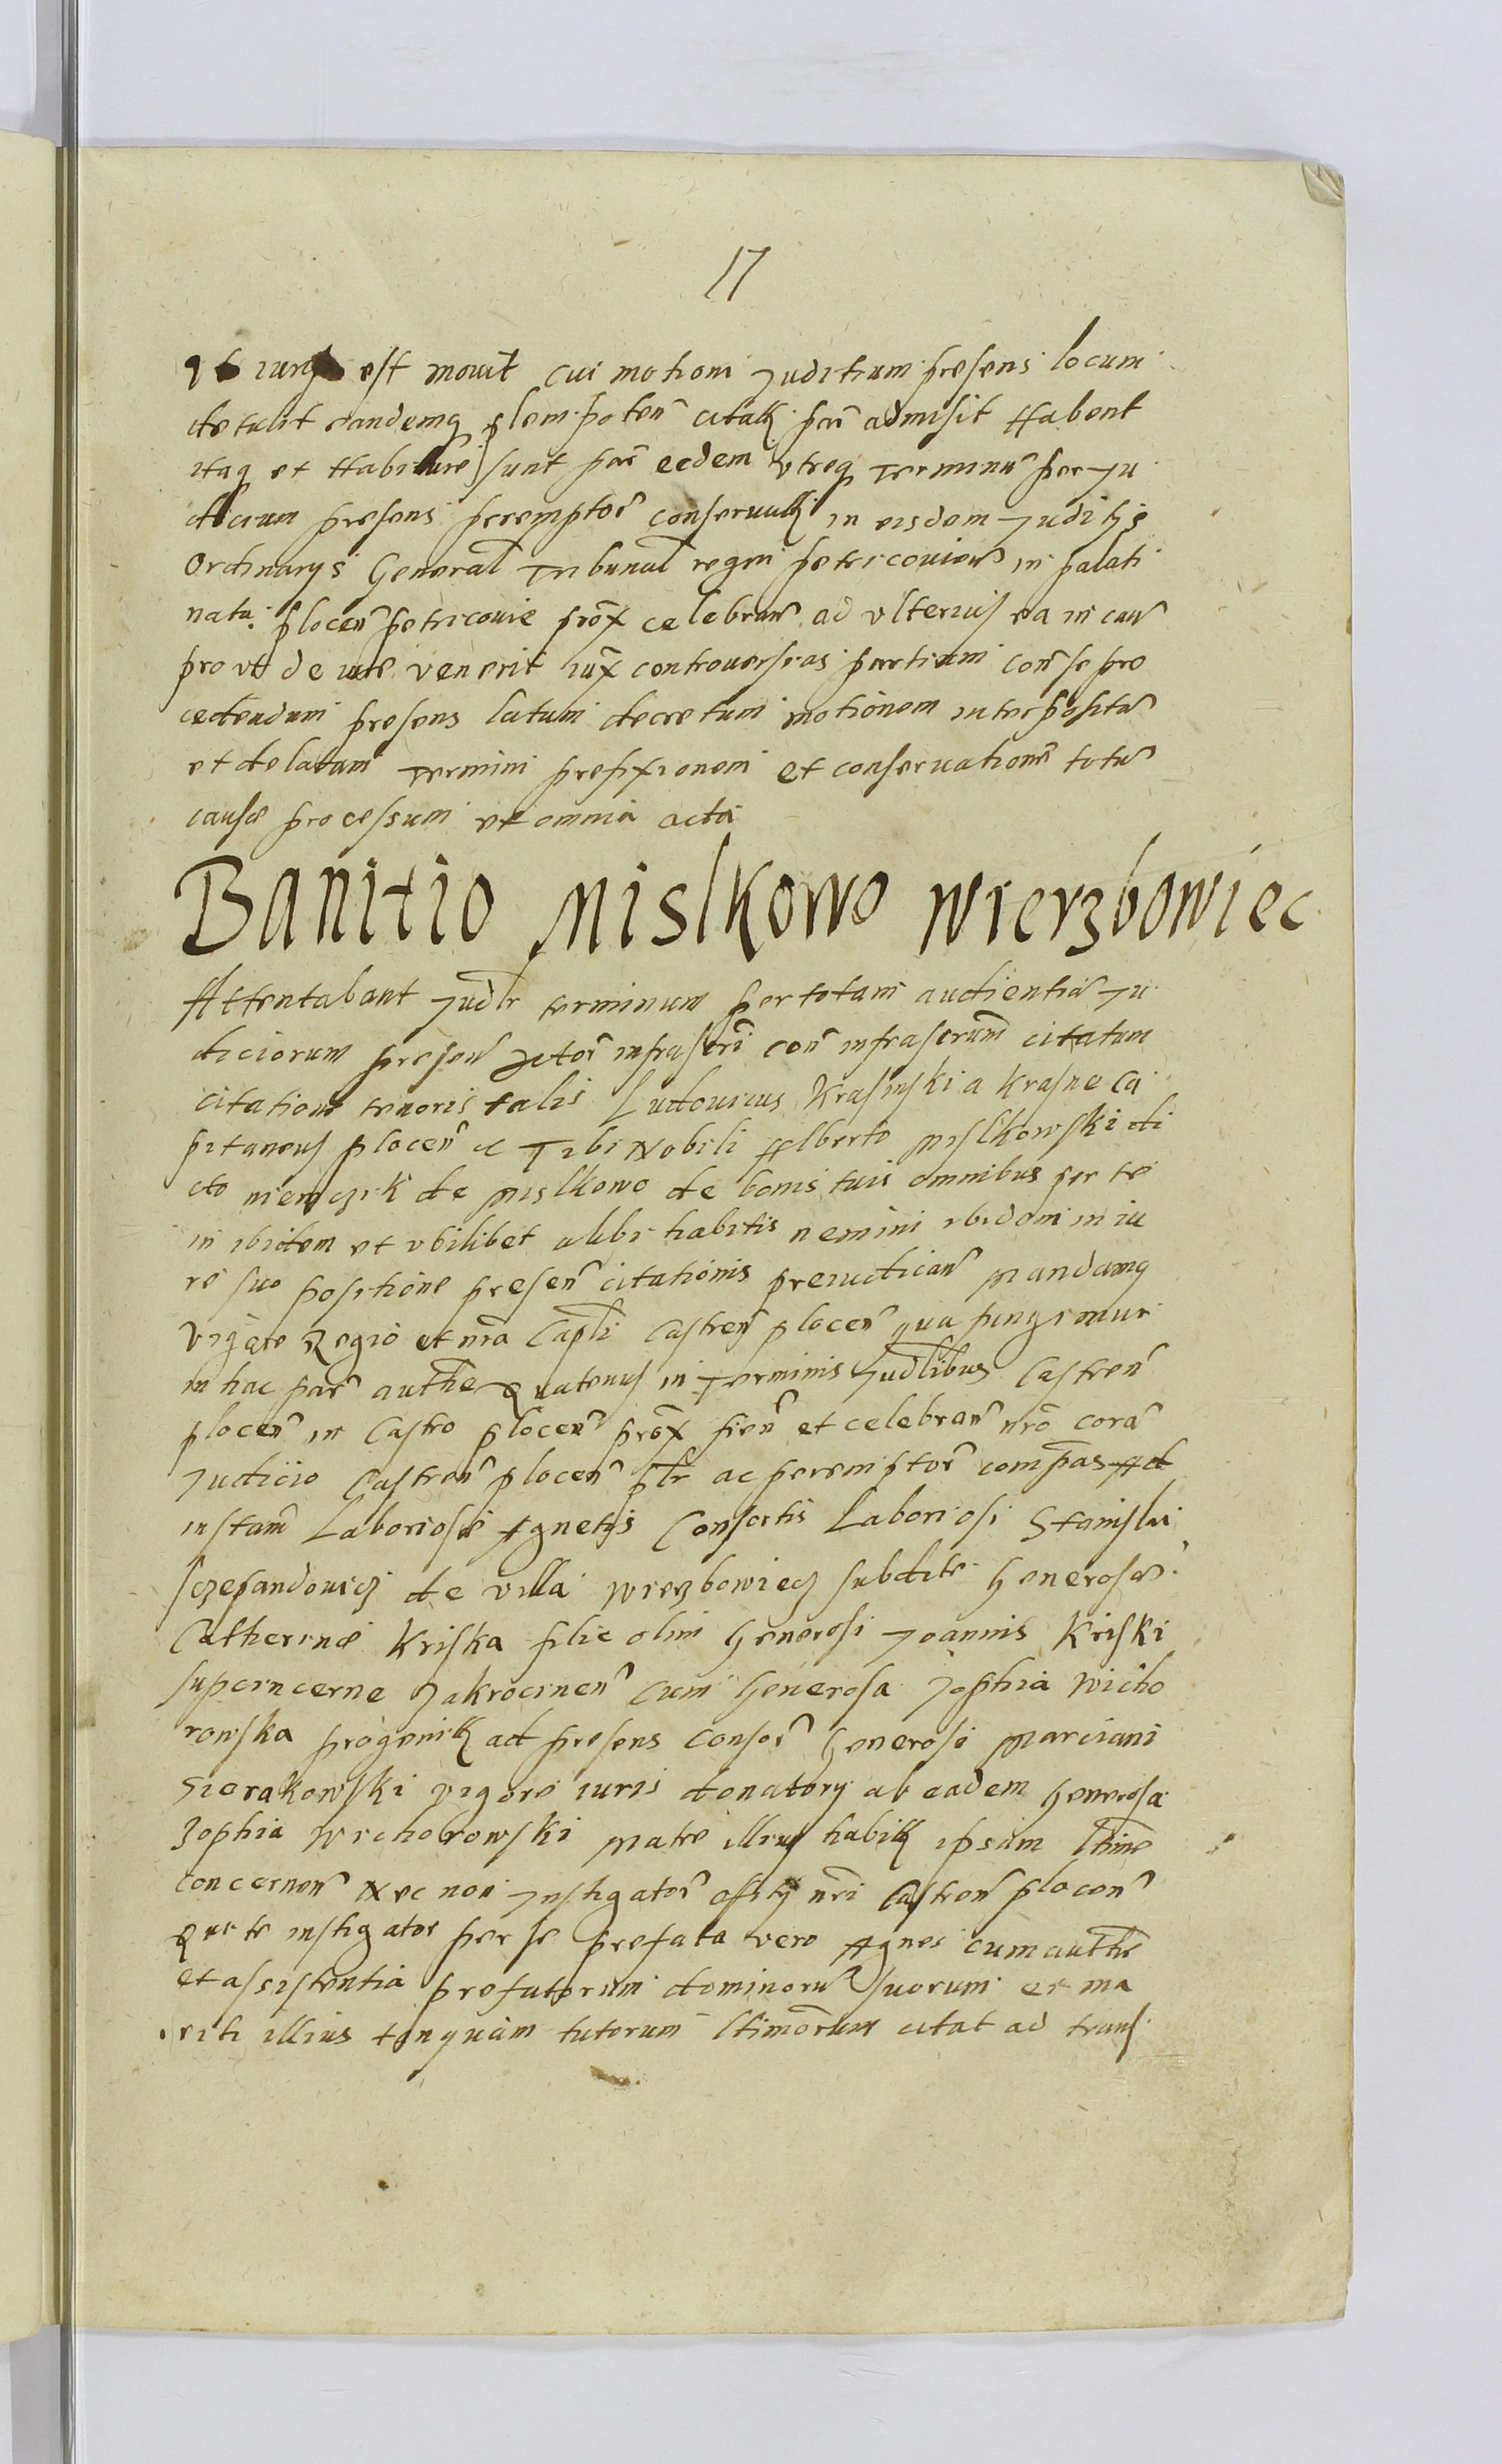 17
iuris est mouit Cui motioni Juditium presens locum
detulit eandemq plenipoten citati par admisit Habent
itaq et Habiture sunt par eedem vtreq Terminu per Ju
dicium presens peremptor conseruati in eisdem Juditijs
Ordinarys General Tribunal regni petricouien in palati
natu plocen petricouie prox celebran ad vlterius ea in cau
pro vt de iure venerit iux controuersias partium con se pro
cedendum presens latum decretum motionem interpositu
et delatam Termini prefixionem et conseruationem totu
cause processum et omnia acta
Banitio Mislkowo Wierzbowiec
Attentabant Judlr terminum per totam audientia Ju
diciorum presen Actor infrascri con infrascrum citatum
citatione tenoris talis Ludouicus Krasinski a Krasne Ca
pitaneus plocen et Tibi Nobili Alberto Mislkowski di
cto niemczik de Mislkowo de bonis tuis omnibus per te
in ibidem et vbilibet alibi habitis nemini ibidem in iu
re suo positione presen citationis preiudican Mandamq
vigore Regio et nra Capli Castren plocen qua fungimur
in hac par authe Quatenus in Terminis Judlibus Castren
plocen in Castro plocen prox fien et celebran nro cora
Judicio Castren plocen plr ac peremptor compas Ad
instam Laboriose Agnetis Consortis Laboriosi Stanislai
Sczepandouicz de villa Wierzbowiecz subdite Generosae
Catherinae Kriska filie olim Generosi Joannis Kriski
supincerne Zakrocimen cum Generosa Zophia Wicho
rowska progenit ad presens Consor Generosi Marciani
Sierakowski vigore iuris donatory ab eadem Generosa
Zophia Wichorowski Matre illius habit ipsam ltime
concernen Nec non Instigator offity nri Castren plocen
Qui te instigator per se prefata vero Agnes cum authe
et assistentia prefatorum dominoru suorum et ma
riti illius tanquam tutorum ltimorum citat ad trans